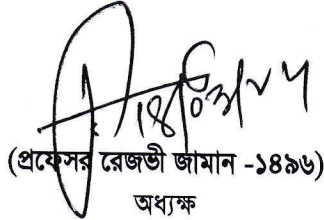 (প্রফেসর রেজভী জামান -১৪৯৬)
অধ্যক্ষ